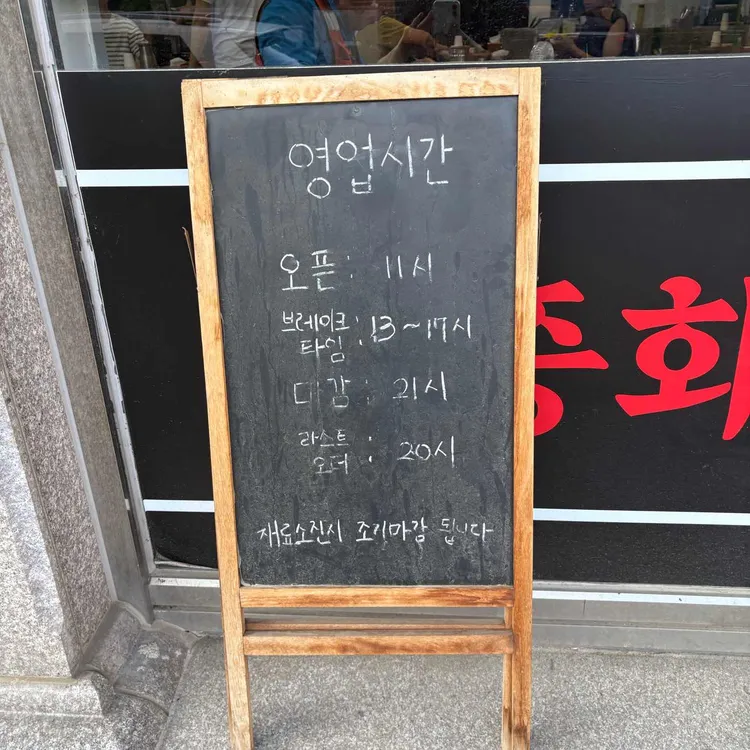 영업시간
오픈 : 11시
브레이크
타임 : 13~17시
마감 : 21시
라스트
오더 : 20시
재료소진시 조기마감 됩니다
중화